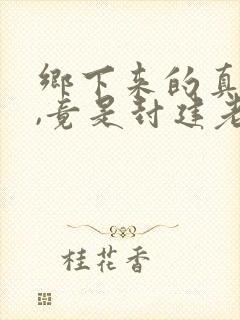 鄉下來的真
,竟是封建老
桂花香